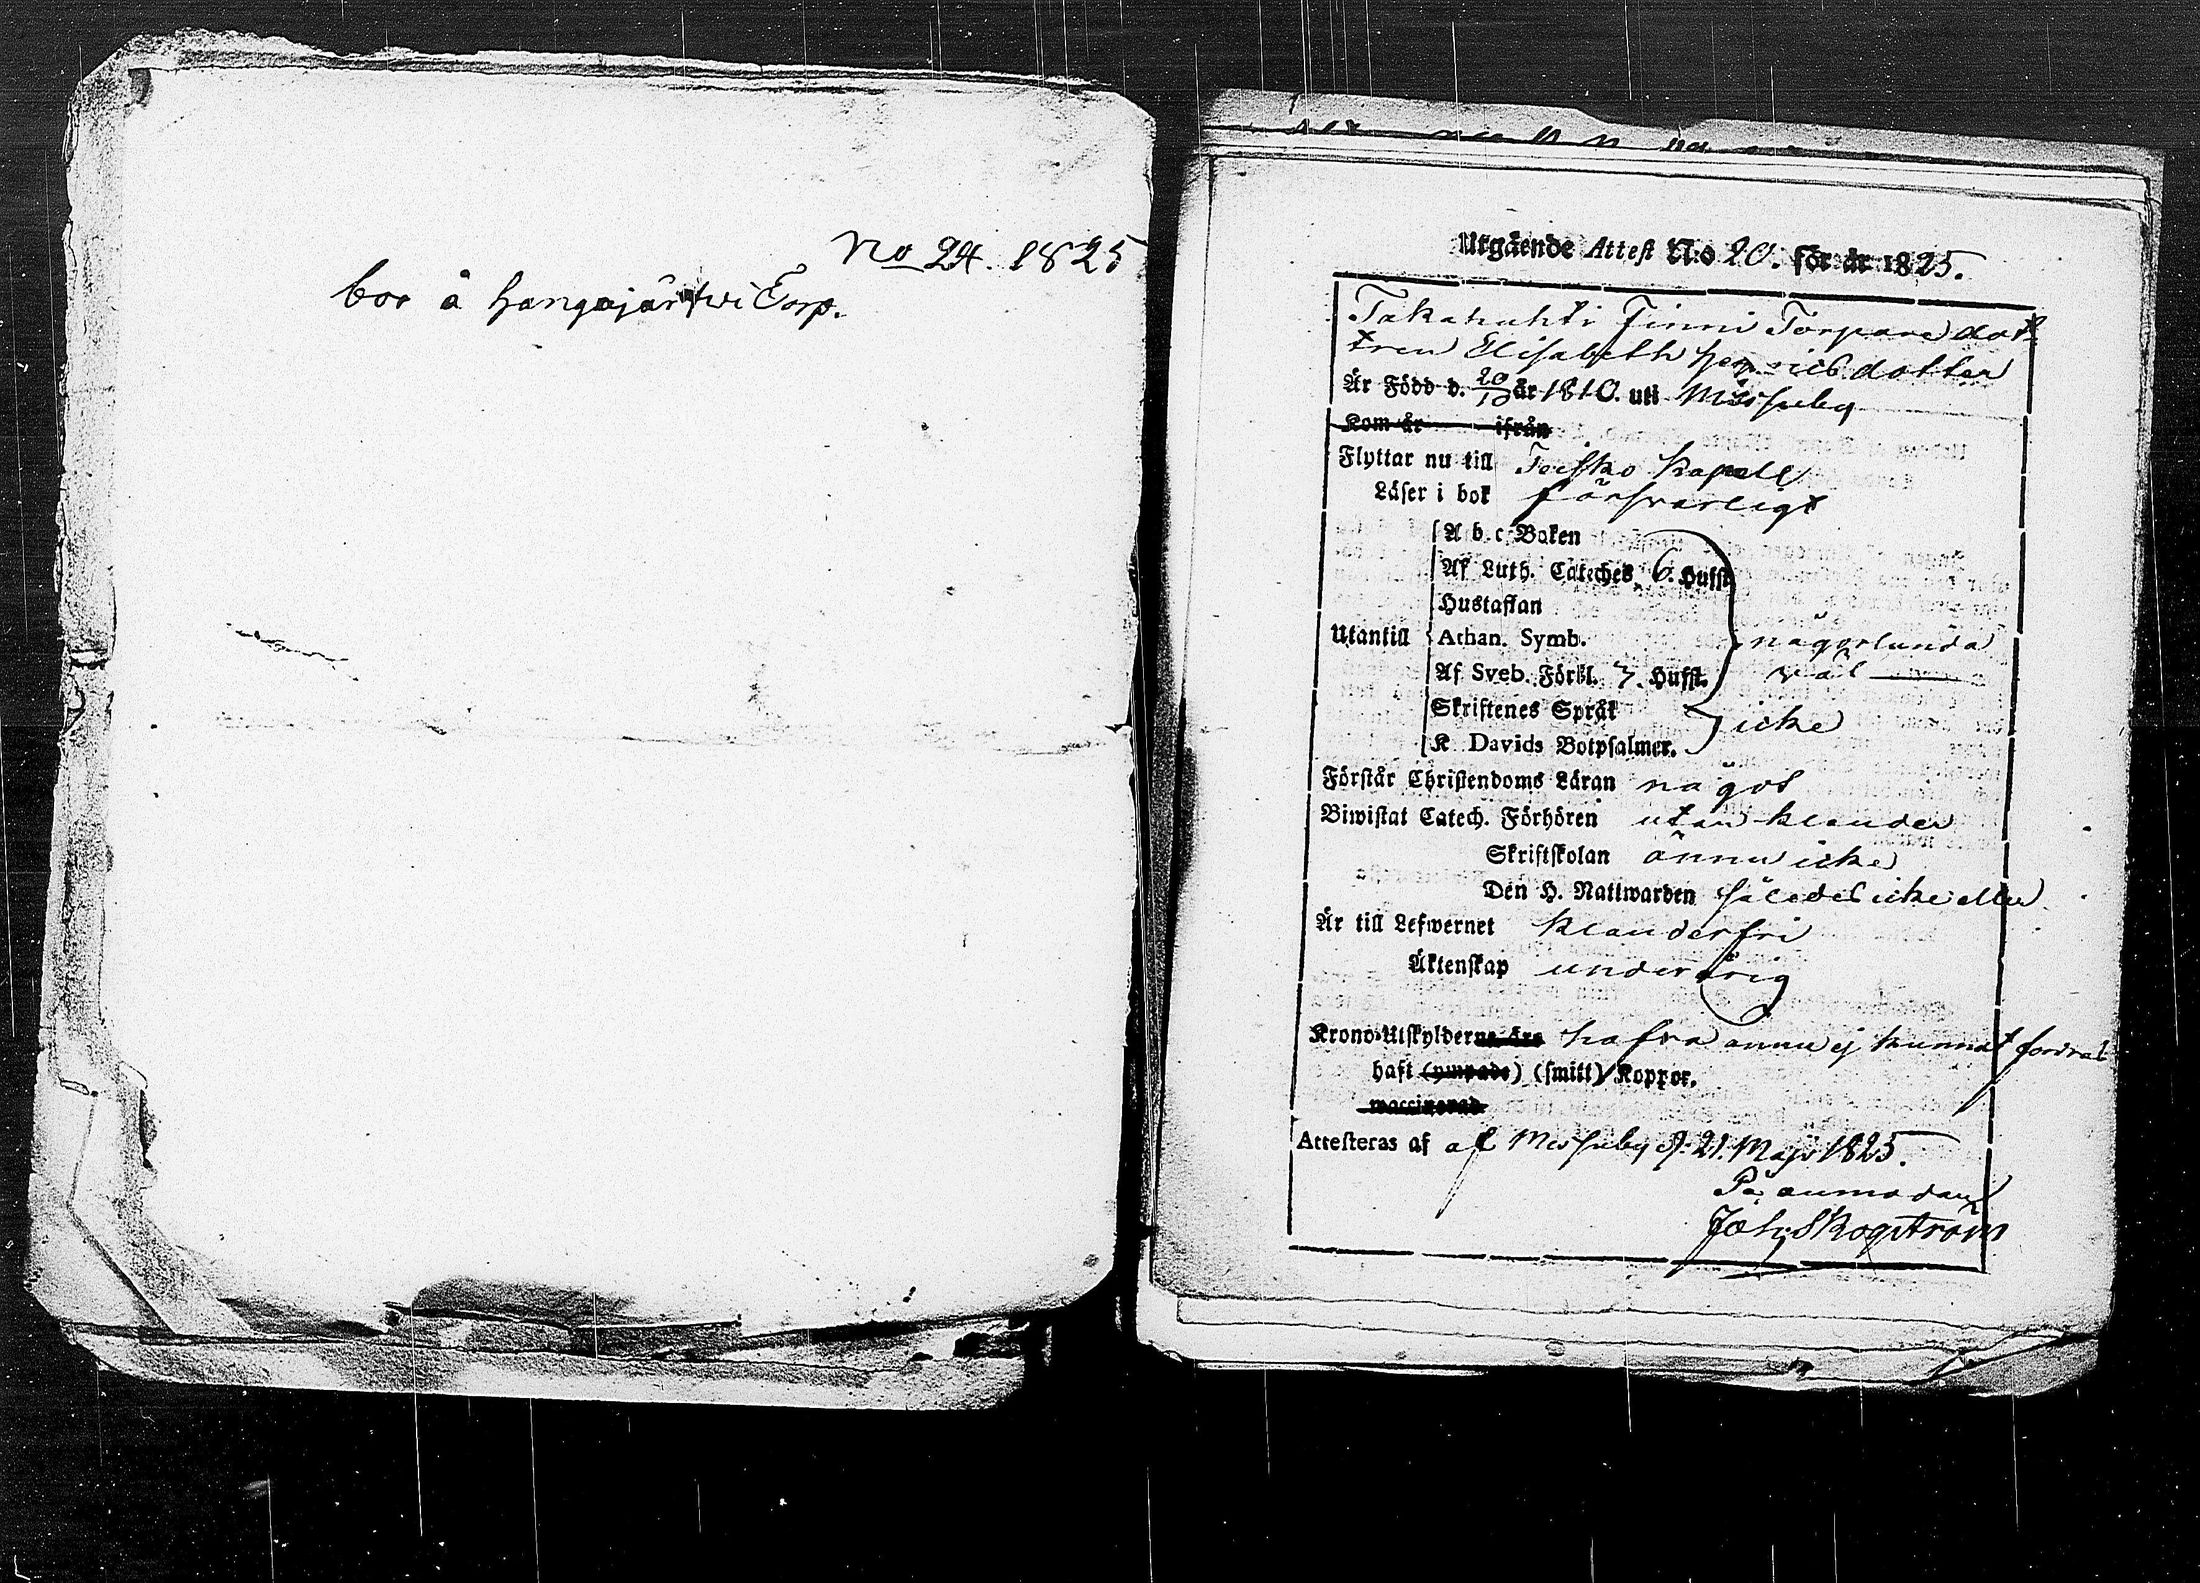 No 24. 1825
boo å Hangojärfwi Torp.
Utgående Attest N:o 20. för år 1825.
Takahuhti Finni Torpare dot-
tren Elisabeth Henricsdotter
Är Född d. 20/10 år 1810. uti Messuby
Kom år ifrån
Flyttar nu till Teisko Kapell
Läser i bok försvarligt
A b c Boken
Af Luth. Cateches 6. Hufst.
Hustaflan
Utantill Athan. Symb. någorlunda
Af Sveb. Förkl. 3. Hufst. väl
Skriftenes Språk
icke
K Davids Botpsalmer.
Förstår Christendoms Läran något
Biwistat Catech. Förhören utan klander
Skriftskolan ännu icke
Den H. Nattwarden således icke eller
Är till Lefwernet klanderfri
Äktenskap underårig
Krono-Utskylderna äro hafva ännu ej kunnat fordras
haft (ympade) (smitt) Koppor.
waccinerad
Attesteras af af Messuby d. 21. Maji 1825.
På anmodan
Joh: Skogström